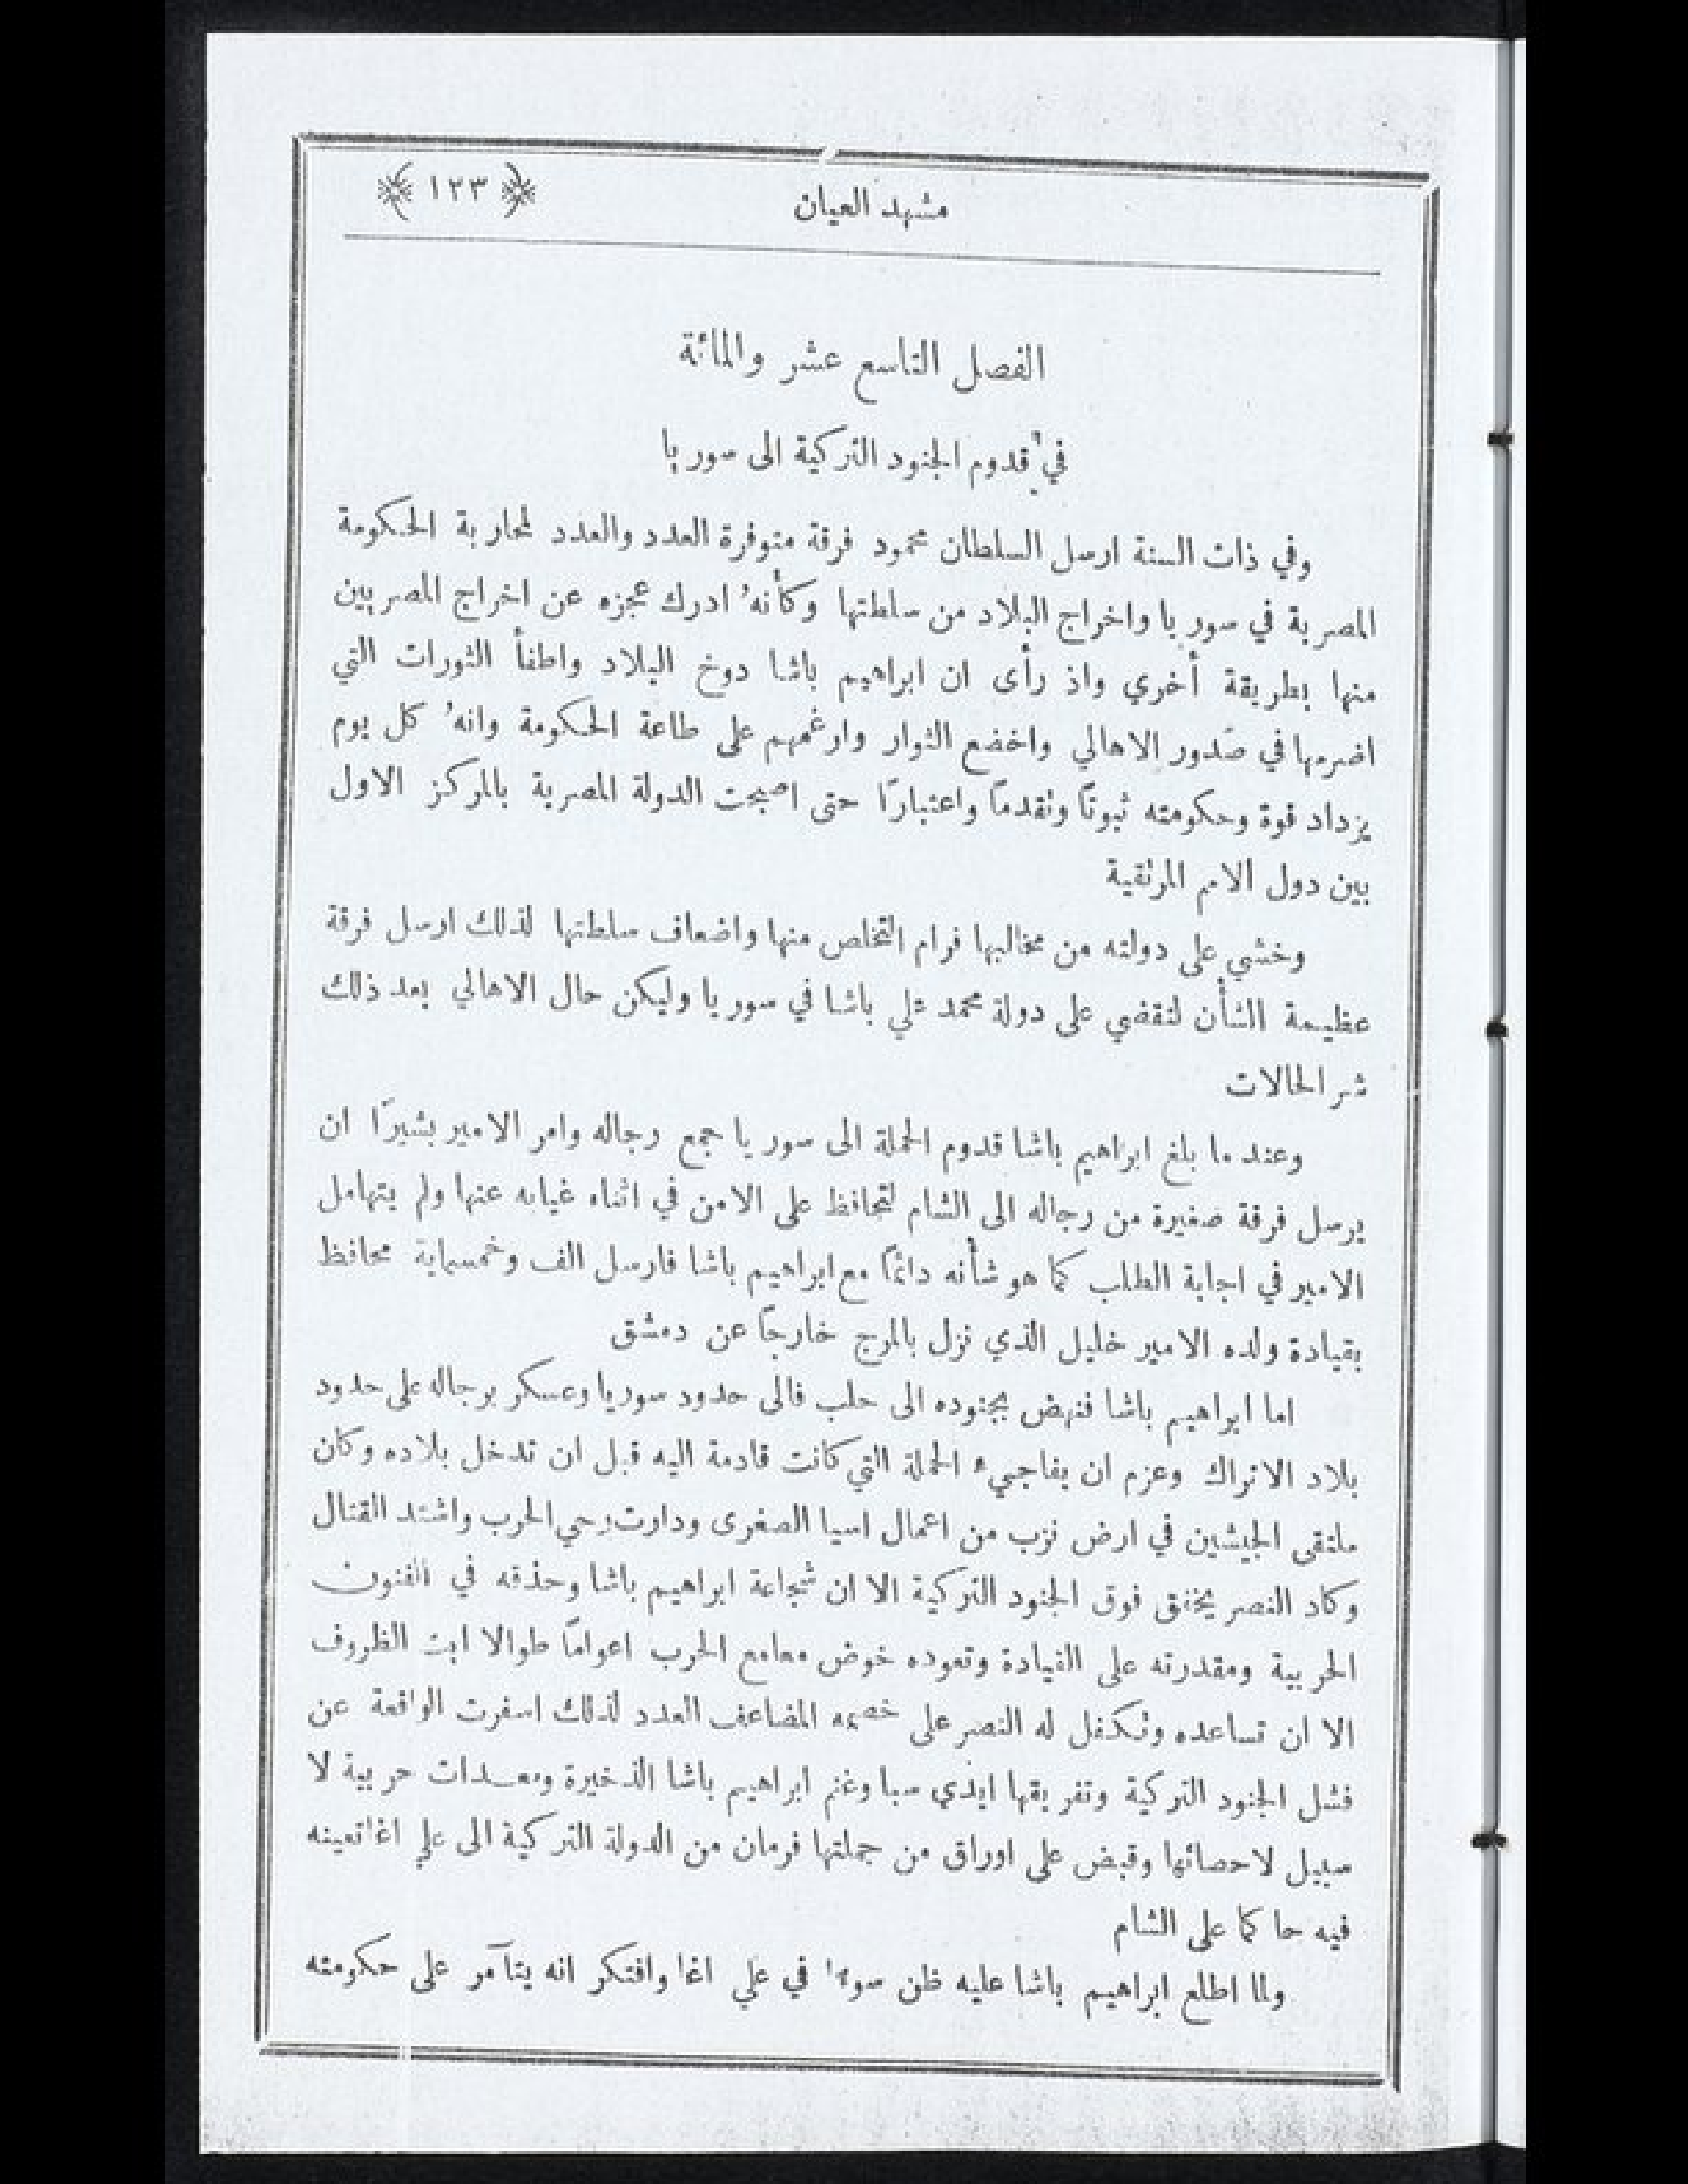 مشهد العيان
﴿ ١٢٣ ﴾
الفصل التاسع عشر والمائة
في قدوم الجنود التركية الى سوريا
وفي ذات السنة ارسل السلطان محمود فرقة متوفرة العدد والعدد لمحاربة الحكومة
المصرية في سوريا واخراج البلاد من سلطتها وكأنهُ ادرك عجزه عن اخراج المصريين
منها بطريقة أخري واذ رأى ان ابراهيم باشا دوخ البلاد واطفأ الثورات التي
اضرمها في صدور الاهالي واخضع الثوار وارغمهم على طاعة الحكومة وانهُ كل يوم
يزداد قوة وحكومته ثبوتًا وتقدمًا واعتبارًا حتى اصبحت الدولة المصرية بالمركز الاول
بين دول الامم المرتقية
وخشي على دولته من مخالبها فرام التخلص منها واضعاف سلطتها لذلك ارسل فرقة
عظيمة الشأن لتقضي على دولة محمد علي باشا في سوريا وليكن حال الاهالي بعد ذلك
شر الحالات
وعند ما بلغ ابراهيم باشا قدوم الحملة الى سوريا جمع رجاله وامر الامير بشيرًا ان
يرسل فرقة صغيرة من رجاله الى الشام لتحافظ على الامن في اثناء غيابه عنها ولم يتهامل
الامير في اجابة الطلب كما هو شأنه دائمًا مع ابراهيم باشا فارسل الف وخمسماية محافظ
بقيادة ولده الامير خليل الذي نزل بالمرج خارجًا عن دمشق
اما ابراهيم باشا فنهض بجنوده الى حلب فالى حدود سوريا وعسكر برجاله على حدود
بلاد الاتراك وعزم ان يفاجيء الحملة التي كانت قادمة اليه قبل ان تدخل بلاده وكان
ملتقى الجيشين في ارض نزب من اعمال اسيا الصغرى ودارت رحي الحرب واشتد القتال
وكاد النصر يخفق فوق الجنود التركية الا ان شجاعة ابراهيم باشا وحذقه في الفنون
الحربية ومقدرته على القيادة وتعوده خوض معامع الحرب اعوامًا طوالا ابت الظروف
الا ان تساعده وتكفل له النصر على خصمه المضاعف العدد لذلك اسفرت الواقعة عن
فشل الجنود التركية وتفريقها ايدي سبا وغنم ابراهيم باشا الذخيرة ومعدات حربية لا
سبيل لاحصائها وقبض على اوراق من جملتها فرمان من الدولة التركية الى علي اغا تعينه
فيه حاكما على الشام
ولما اطلع ابراهيم باشا عليه ظن سوءًا في علي اغا وافتكر انه يتآمر على حكومته